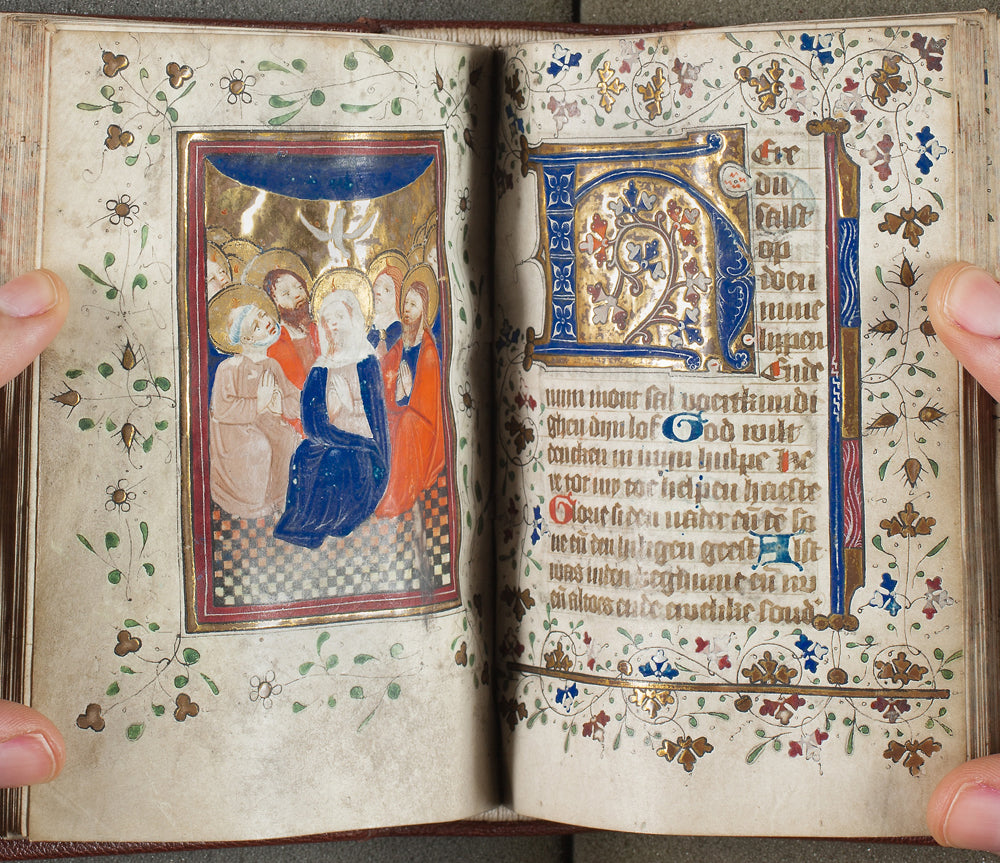 Here
du
salst
op
doen
mine
lippen
Ende
mijn mont sal voertkundi
ghen dijn lof God wilt
dencken in mijn hulpe He
re tot my toe helpen haeste
Glorie si den vader en̄ dē so
ne en̄ den heiligen geest Alst
was inden beghinne en̄ nu
en̄ altoes ende ewelike sonder